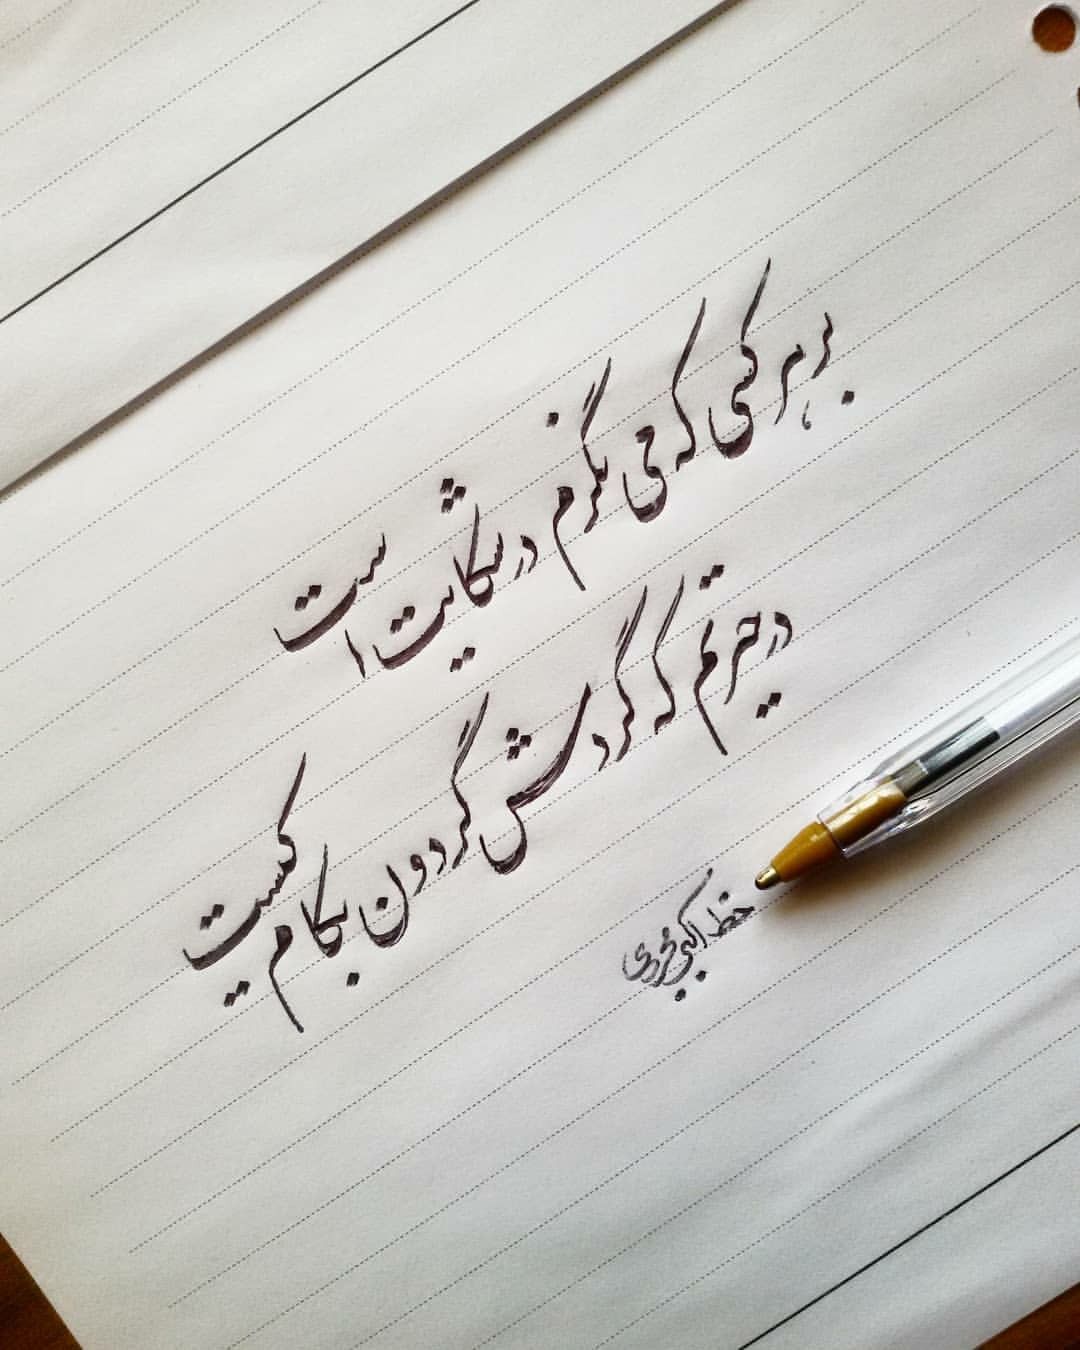 بر هر کسی که می نگرم در شکایت است
در حیرتم که گردش گردون بکام کیست
خط اکبر